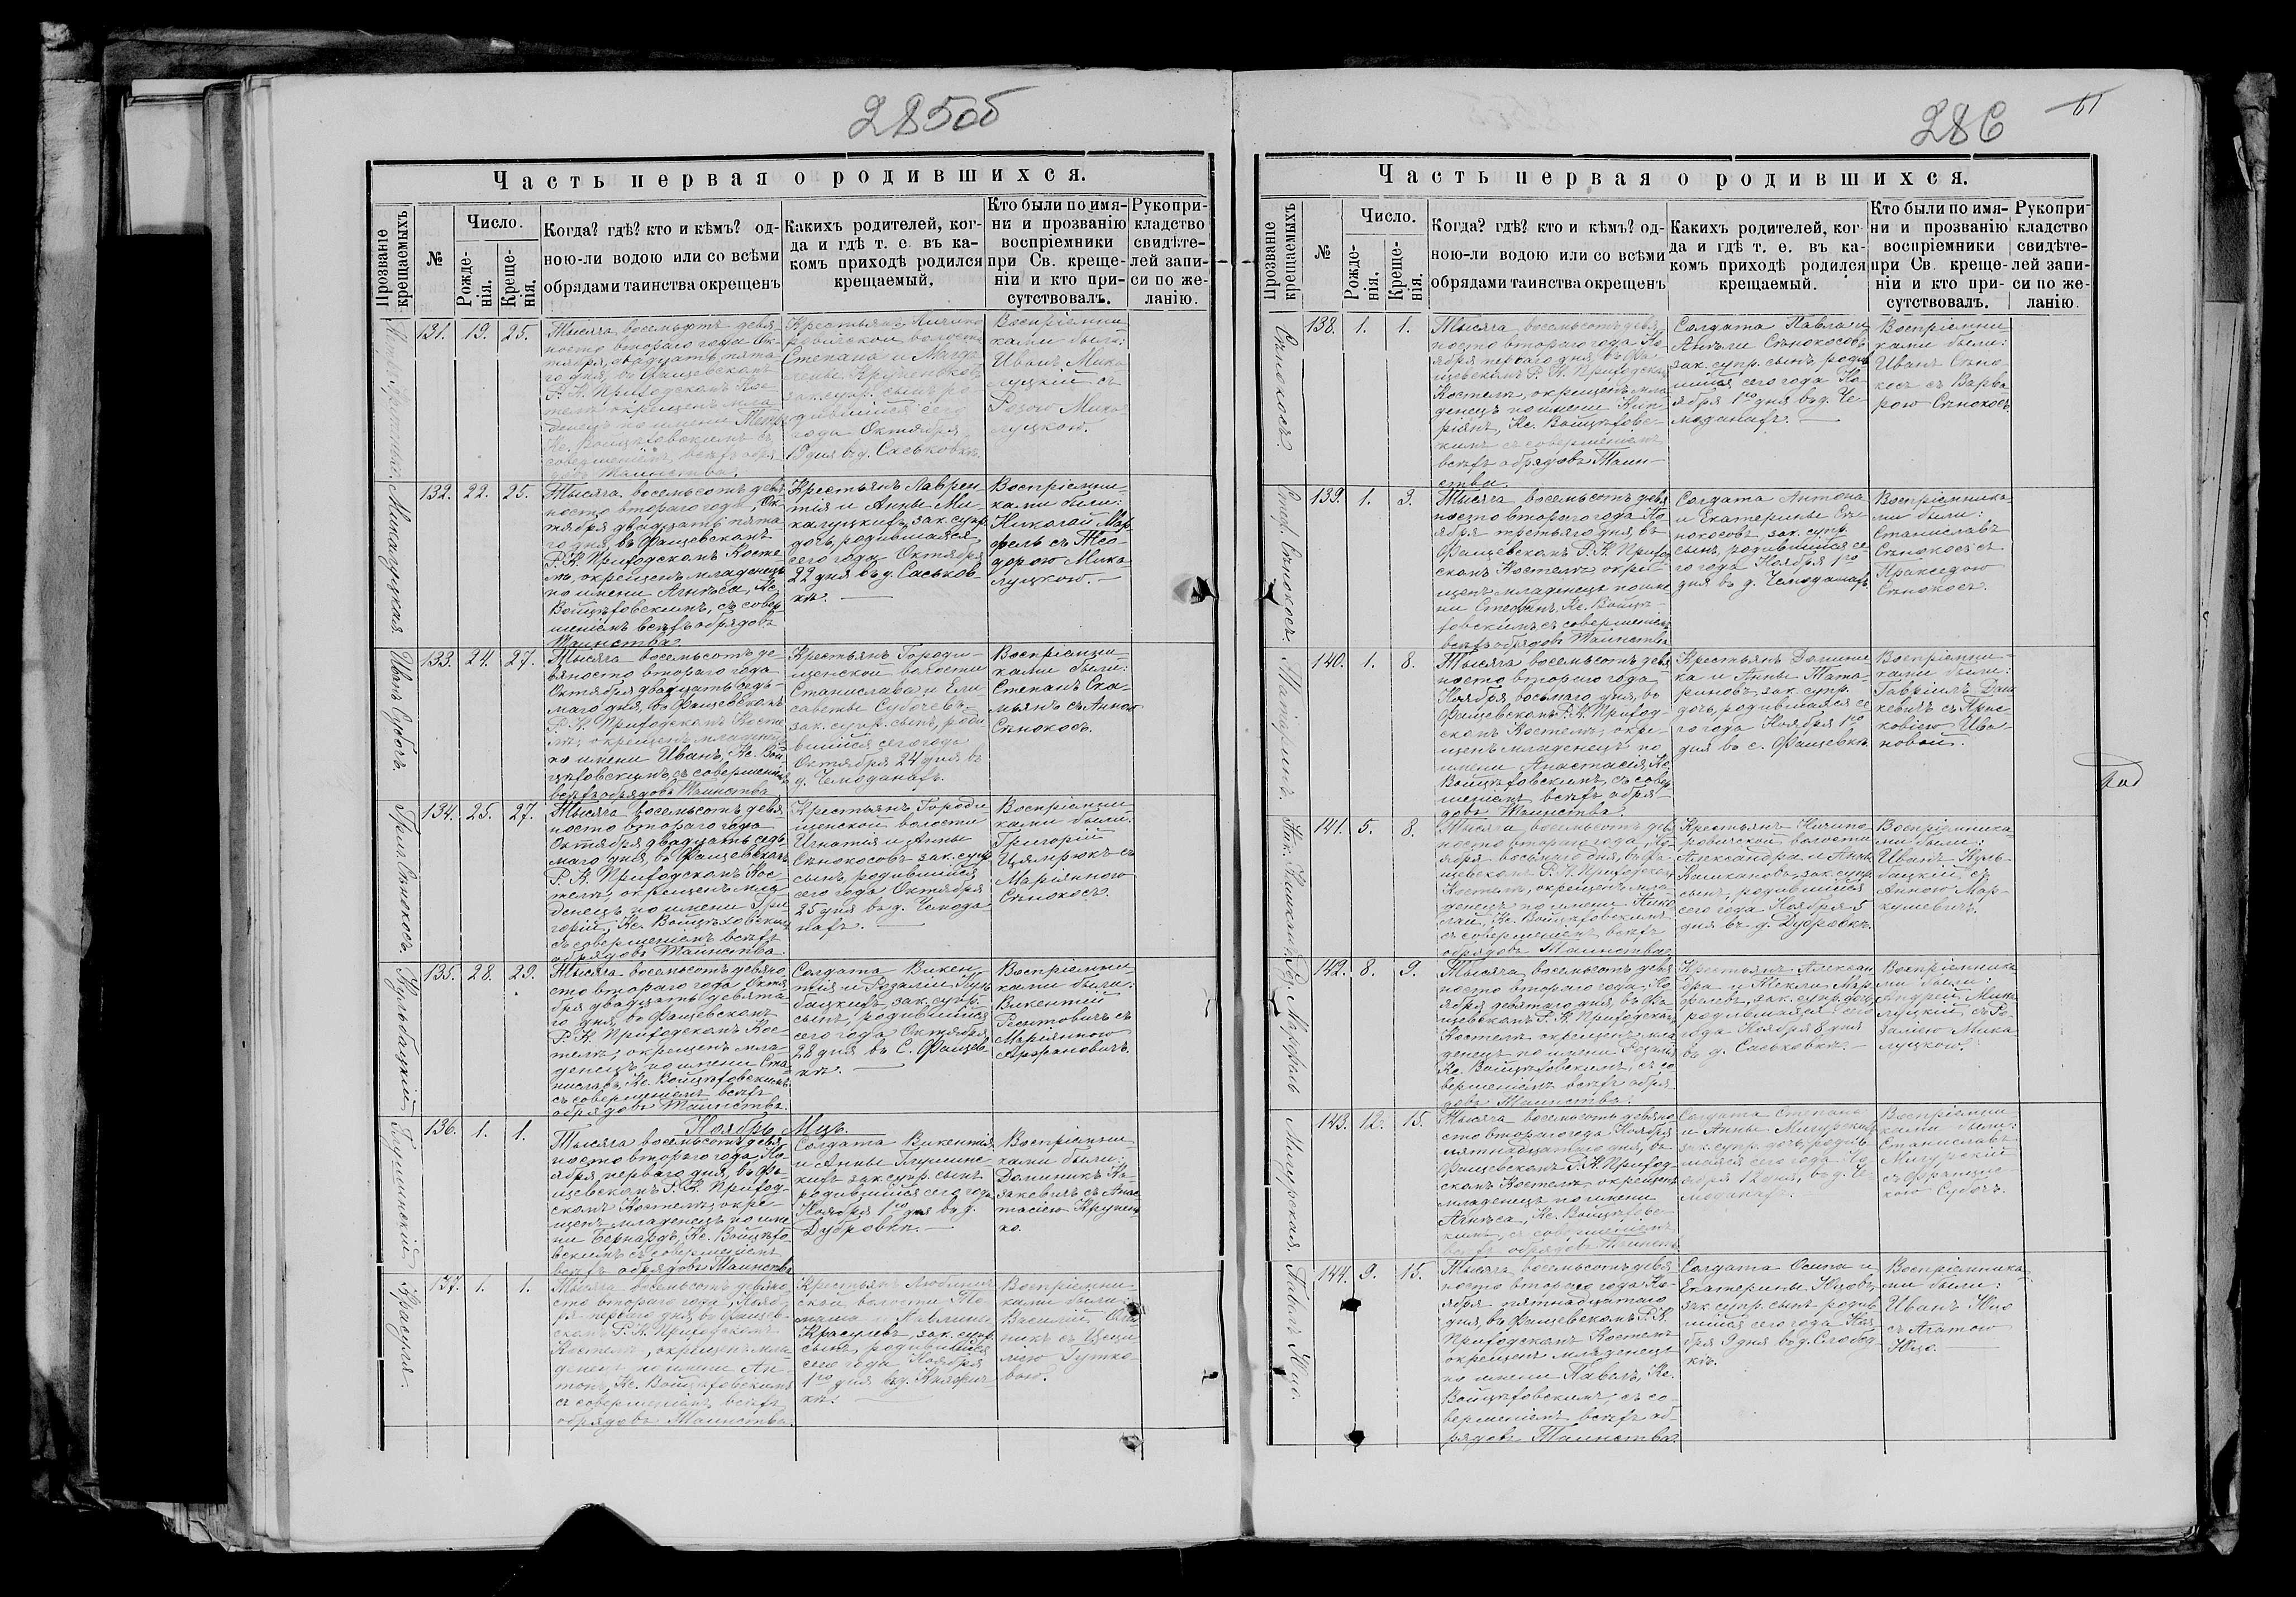 285об
Часть первая о родившихся.
Прозваніе крещаемыхъ
№
Число.
Рожде-
нія.
Креще-
нія.
Когда? гдѣ? кто и кѣмъ? од-
ною-ли водою или со всѣми
обрядами таинства окрещенъ
Какихъ родителей, ког-
да и гдѣ т. е. въ ка-
комъ приходѣ родился
крещаемый.
Кто были по имя-
ни и прозванію
воспріемники
при Св. креще-
ніи и кто при-
сутствовалъ.
Рукопри-
кладство
свидѣте-
лей запи-
си по же-
ланію.
131. 19. 25.
Тысяча восемьсотъ девя
носто втораго года Ок-
тября двадцать пята-
го дня, въ Фащевскомъ
Р. К. Приходскомъ Кос-
телѣ окрещенъ мла-
денецъ по имени
Кс. Войцѣховскимъ съ
совершеніемъ всѣхъ обря
довъ Таинства.
Крестьянъ
волости
Степана и Магда
лены
зак. супр. сынъ ро-
дившійся сего
года Октября
19 дня въ д. Саськовкѣ.
Воспріемни
ками были:
Иванъ Мика
луцкій съ
Розою Мика
луцкою.
Микалуцкая
132. 22. 25.
Тысяча восемьсотъ девя
носто втораго года, Ок-
тября двадцать пята
го дня, въ Фащевскомъ
Р. К. Приходскомъ Косте
лѣ, окрещенъ младенецъ
по имени Агнѣса, Кс.
Войцѣховскимъ, съ совер
шеніемъ всѣхъ обрядовъ
Таинства.
Крестьянъ Лаврен
тія и Анны Ми-
калуцкихъ, зак. супр.
дочь, родившаяся
сего года Октября
22 дня въ д. Саськов-
кѣ.
Воспріемни-
ками были:
Николай Мар
фель съ Тео-
дорою Мика
луцкою.
Иванъ Субочъ.
133. 24. 27.
Тысяча восемьсотъ де-
вяносто втораго года
Октября двадцать седь-
маго дня, въ Фащевскомъ
Р. К. Приходскомъ Косте
лѣ, окрещенъ младенецъ
по имени Иванъ, Кс. Вой-
цѣховскимъ, съ совершеніемъ
всѣхъ обрядовъ Таинства.
Крестьянъ Городи-
щенской волости
Станислава и Ели
саветы Субочевъ,
зак. супр. сынъ, роди
вшійся сего года
Октября 24 дня въ
д. Чемоданахъ.
Воспріемни-
ками были:
Степанъ Ска-
мьянъ съ Анною
Сѣнокосъ.
Григ. Сѣнокосъ.
134. 25. 27.
Тысяча восемьсотъ девя
носто втораго года
Октября двадцать седь
маго дня, въ Фащевскомъ
Р. К. Приходскомъ Кос
телѣ, окрещенъ мла
денецъ по имени Гри-
горій, Кс. Войцѣховскимъ
съ совершеніемъ всѣхъ
обрядовъ Таинства.
Крестьянъ Городи
щенской волости
Игнатія и Анны
Сѣнокосовъ зак. супр.
сынъ, родившійся
сего года Октября
25 дня въ д. Чемода-
нахъ.
Воспріемни-
ками были:
Григорій
Цямрюкъ съ
Маріянною
Сѣнокосъ.
Кульбацкій
135. 28. 29.
Тысяча восемьсотъ девяно
сто втораго года Октя
бря двадцать девята-
го дня, въ Фащевскомъ
Р. К. Приходскомъ Кос-
телѣ, окрещенъ мла-
денецъ по имени Ста-
ниславъ, Кс. Войцѣховскимъ
съ совершеніемъ всѣхъ
обрядовъ Таинства.
Солдата Викен
тія и Розаліи Куль
бацкихъ, зак. супр.
сынъ, родившійся
сего года Октября
28 дня въ С. Фащев-
кѣ.
Воспріемни-
ками были:
Викентій
съ
Маріянною
Арфановичъ.
Ноябрь Мцъ.
Глушинскій
136. 1. 1.
Тысяча восемьсотъ девя
носто втораго года, Но-
ября перваго дня, въ Фа-
щевскомъ Р. К. Приход-
скомъ Костелѣ, окре-
щенъ младенецъ по име
ни Бернардъ, Кс. Войцѣхо
вскимъ съ совершеніемъ
всѣхъ обрядовъ Таинства
Солдата Викентія
и Анны Глушинс
кихъ зак. супр. сынъ
родившійся сего года
Ноября 1го дня въ д.
Дубровкѣ.
Воспріемни
ками были:
Доминикъ
съ Анас
тасіею Крупень
ко.
Красуля.
137. 1. 1.
Тысяча восемьсотъ девяно
сто втораго года, Нояб-
ря перваго дня, въ Фащев-
скомъ Р. К. Приходскомъ
Костелѣ, окрещенъ мла-
денецъ по имени Ан-
тонъ, Кс. Войцѣховскимъ
съ совершеніемъ всѣхъ
обрядовъ Таинства.
Крестьянъ
волости То
маша и Павлины
Красулевъ, зак. супр.
сынъ, родившійся
сего года Ноября
1го дня въ д. Княжич-
кѣ.
Воспріемни
ками были:
Василій
съ Цеци
ліею Гутко-
вою.
286
61
Часть первая о родившихся.
Прозваніе крещаемыхъ
№
Число.
Рожде-
нія.
Креще-
нія.
Когда? гдѣ? кто и кѣмъ? од-
ною-ли водою или со всѣми
обрядами таинства окрещенъ
Какихъ родителей, ког-
да и гдѣ т. е. въ ка-
комъ приходѣ родился
крещаемый.
Кто были по имя-
ни и прозванію
воспріемники
при Св. креще-
ніи и кто при-
сутствовалъ.
Рукопри-
кладство
свидѣте-
лей запи-
си по же-
ланію.
Сѣнокосъ.
138. 1. 1.
Тысяча восемьсотъ девя
носто втораго года Но-
ября перваго дня, въ Фа-
щевскомъ Р. К. Приходском
Костелѣ, окрещенъ мла
денецъ по имени Кип-
ріянъ, Кс. Войцѣховс-
кимъ съ совершеніемъ
всѣхъ обрядовъ Таин-
ства.
Солдата Павла и
Анѣли Сѣнокосовъ
зак. супр. сынъ, родив
шійся сего года Но-
ября 1го дня въ д. Че-
моданахъ.
Воспріемни
ками были:
Иванъ Сѣно-
косъ съ Варва
рою Сѣнокосъ.
Стеф. Сѣнокосъ.
139. 1. 3.
Тысяча восемьсотъ девя
носто втораго года Но
ября третьяго дня, въ
Фащевскомъ Р. К. Приход
скомъ Костелѣ окре-
щенъ младенецъ по име
ни Стефанъ, Кс. Войцѣ-
ховскимъ съ совершеніемъ
всѣхъ обрядовъ Таинства
Солдата Антона
и Екатерины Сѣ-
нокосовъ, зак. супр.
сынъ, родившійся се-
го года Ноября 1го
дня въ д. Чемоданахъ.
Воспріемника
ми были:
Станиславъ
Сѣнокосъ съ
Пракседою
Сѣнокосъ.
140. 1. 8.
Тысяча восемьсотъ девя
носто втораго года
Ноября восьмаго дня, въ
Фащевскомъ Р. К. Приход-
скомъ Костелѣ, окре-
щенъ младенецъ по
имени Анастасія, Кс.
Войцѣховскимъ, съ совер
шеніемъ всѣхъ обря-
довъ Таинства.
Крестьянъ Домини
ка и Анны Тата-
риновъ, зак. супр.
дочь, родившаяся се-
го года Ноября 1го
дня въ с. Фащевкѣ.
Воспріемни-
ками были:
Гавріилъ
съ
Ива-
новой.
141. 5. 8.
Тысяча восемьсотъ девя
носто втораго года, Но-
ября восьмаго дня, въ Фа-
щевскомъ Р. К. Приходском
Костелѣ, окрещенъ мла-
денецъ по имени Нико
лай, Кс. Войцѣховскимъ
съ совершеніемъ всѣхъ
обрядовъ Таинства.
Крестьянъ
волости
Александра и Анны
зак. супр.
сынъ, родившійся
сего года Ноября 5
дня въ д. Дубровкѣ.
Воспріемника-
ми были:
Иванъ Куль-
бацкій съ
Анною Мар-
кушевичъ.
Роз. Марфель
142. 8. 9.
Тысяча восемьсотъ девя
носто втораго года, Но
ября девятаго дня, въ Фа
щевскомъ Р. К. Приходском
Костелѣ окрещенъ мла
денецъ по имени Розалія
Кс. Войцѣховскимъ, съ со
вершеніемъ всѣхъ обря
довъ Таинства.
Крестьянъ Алексан
дра и Теклы Мар
фелевъ, зак. супр. дочь,
родившаяся сего
года Ноября 8 дня
въ д. Саськовкѣ.
Воспріемника
ми были:
Андрей Мика
луцкій съ Ро-
заліею Мика-
луцкою.
Мигурская.
143. 12. 15.
Тысяча восемьсотъ девяно
сто втораго года Ноября
пятнадцатаго дня, въ
Фащевскомъ Р. К. Приход-
скомъ Костелѣ окрещенъ
младенецъ по имени
Агнѣса, Кс. Войцѣховс-
кимъ, съ совершеніемъ
всѣхъ обрядовъ Таинства
Солдата Степана
и Анны Мигурскихъ
зак. супр. дочь, родив
шаяся сего года Но-
ября 12 дня, въ д. Че-
моданахъ.
Воспріемни
ками были:
Станиславъ
Мигурскій
съ Францис
кою Субочъ.
Павелъ Юцо.
144. 9. 15.
Тысяча восемьсотъ девя
носто втораго года Но-
ября пятнадцатаго
дня, въ Фащевскомъ Р. К.
Приходскомъ Костелѣ
окрещенъ младенецъ
по имени Павелъ, Кс.
Войцѣховскимъ, съ со-
вершеніемъ всѣхъ об-
рядовъ Таинства.
Солдата Осипа и
Екатерины Юцовъ,
зак. супр. сынъ родив
шійся сего года Ноя
бря 9 дня въ д. Слобод
кѣ.
Воспріемника-
ми были:
Иванъ Юцо
съ Агатою
Юцо.